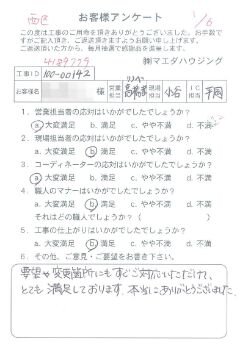 西区 お客様アンケート 1/6
この度は工事のご用命を頂きありがとうございました。お手数で
すがご記入頂き、ご返送頂きますようお願い申し上げます。
ご返送頂いた方から、毎月抽選で粗品を進呈します。
㈱マエダハウジング
工事ID 100-00142 様 営業担当 現場担当 小谷 IC担当 平岡
1. 営業担当者の応対はいかがでしたでしょうか?
a.大変満足 b.満足 c.やや不満 d.不満
2. 現場担当者の応対はいかがでしたでしょうか?
a.大変満足 b.満足 c.やや不満 d.不満
3. コーディネーターの応対はいかがでしたでしょうか?
a.大変満足 b.満足 c.やや不満 d.不満
4. 職人のマナーはいかがでしたでしょうか?
a.大変満足 b.満足 c.やや不満 d.不満
それはどの職人でしょうか?(
5. 工事の仕上がりはいかがでしたでしょうか?
a.大変満足 b.満足 c.やや不満 d.不満
6. その他、ご意見・ご要望をお書き下さい。
要望や変更箇所にもすぐご対応いただけ、
とても満足しております。本当にありがとうございました。